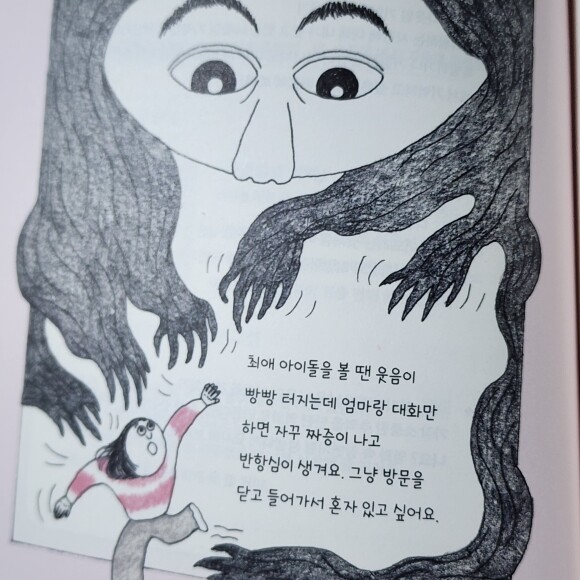 최애 아이돌을 볼 땐 웃음이
빵빵 터지는데 엄마랑 대화만
하면 자꾸 짜증이 나고
반항심이 생겨요. 그냥 방문을
닫고 들어가서 혼자 있고 싶어요.